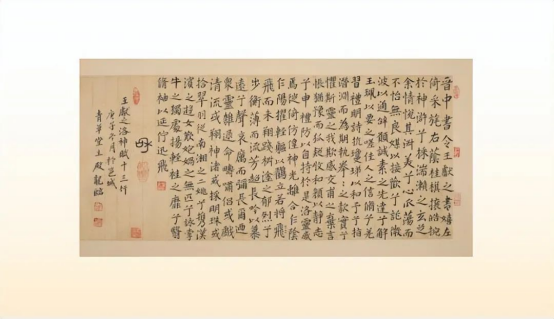 晉中書令王獻之書嬉左
倚采旄右蔭桂旗攘皓腕
於神滸兮采湍瀨之玄芝
余情悅其淑美兮心振蕩而
不怡無良媒以接歡兮託微
波以通辭願誠素之先達兮解
玉珮以要之嗟佳人之信脩兮羌
習禮明詩抗瓊珶以和予兮指
潛淵而為期執拳之款實兮
懼斯靈之我欺感交甫之棄言
兮悵猶豫而狐疑收和顏以靜志
兮申禮防以自持於是洛靈感
焉徙倚彷徨神光離合乍陰
乍陽擢輕軀以鶴立若將
飛而未翔踐椒塗之郁烈兮
步蘅薄而流芳超長吟以慕
遠兮聲哀厲而彌長爾迺
衆靈雜遝命疇嘯侶或戲
清流或翔神渚或採明珠或
拾翠羽從南湘之二妃兮攜漢
濱之遊女歎媧之無匹兮詠牽
牛之獨處揚輕袿之靡兮翳
脩袖以延佇迅飛
王獻之洛神賦十三行
冬月於
青華堂王龍臨